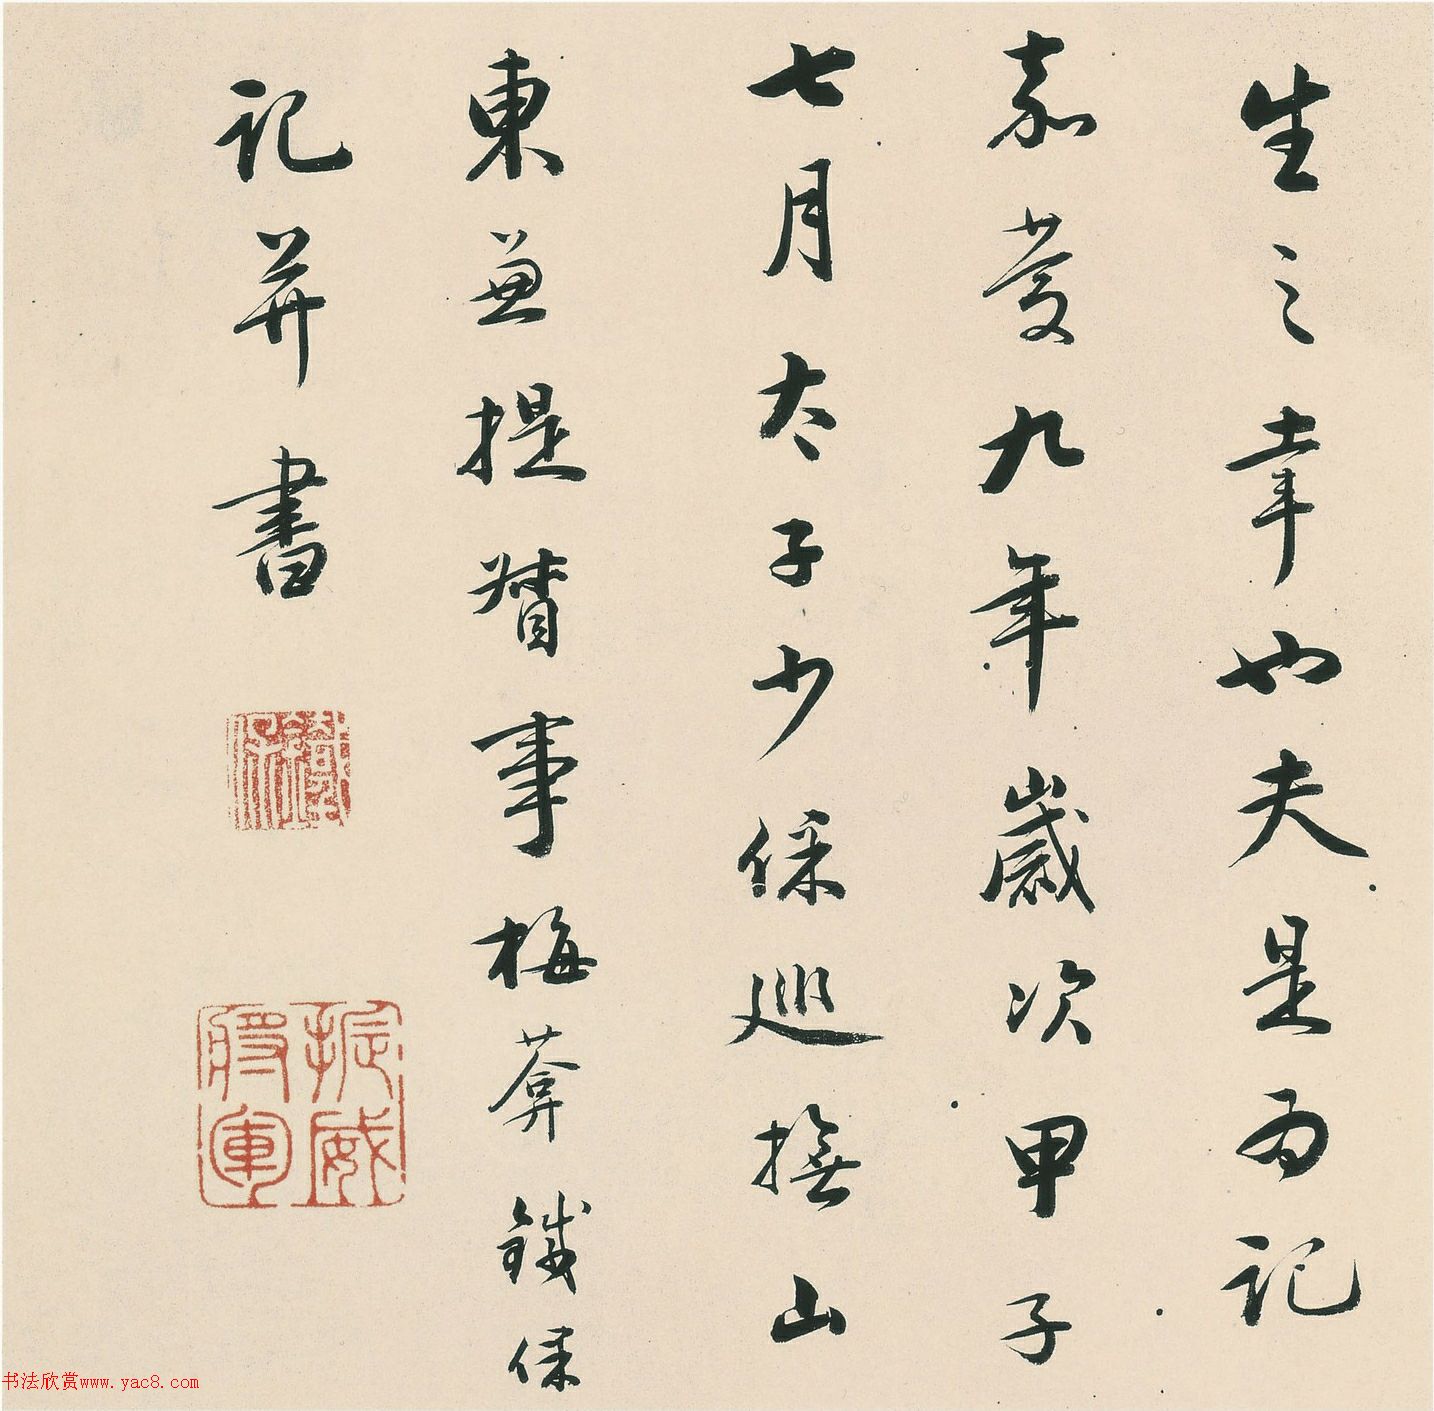 生之幸也夫是為記
嘉慶九年歲次甲子
七月太子少保巡撫山
東兼提督事梅菴鐵保
記并書
鐵保
振威將軍
书法欣赏www.yac8.com